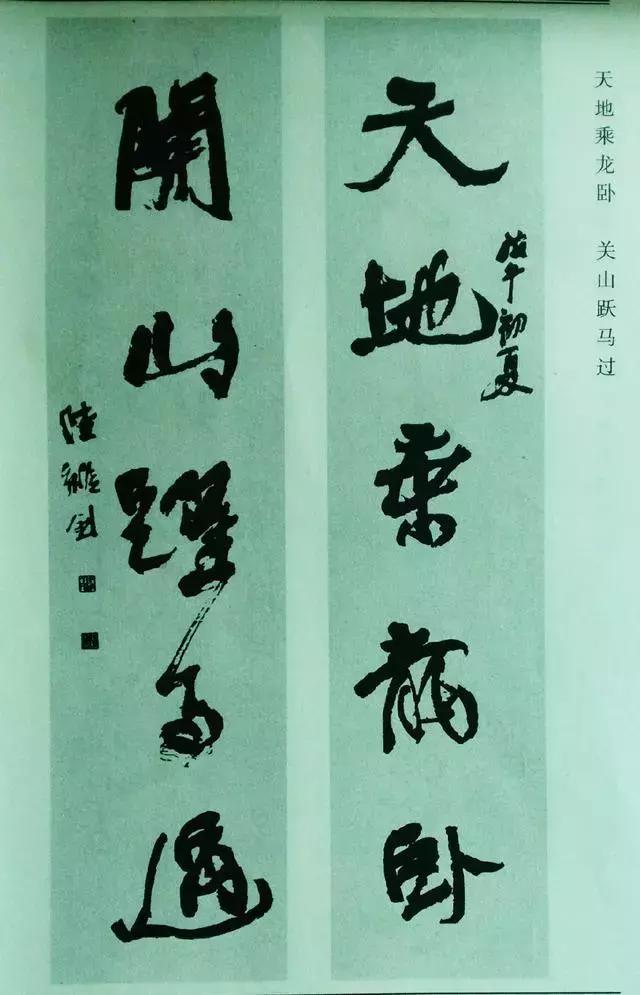 天地乘龙卧　关山跃马过
戊午初夏
天地乘龍卧
關山躍馬過
陸維釗